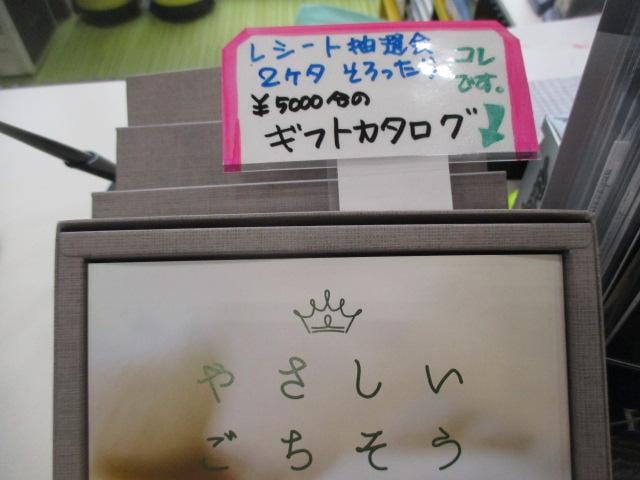 レシート抽選会
2ケタ そろったら
コレ
です。
¥5000分の
ギフトカタログ
やさしい
ごちそう